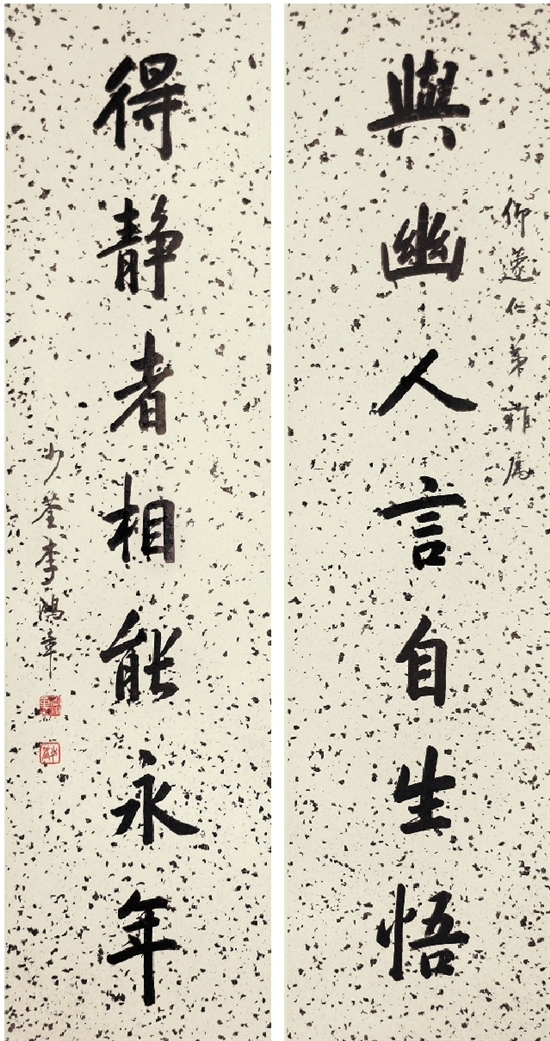 仰蘧仁弟雅属
與幽人言自生悟
得静者相能永年
少荃李鴻章